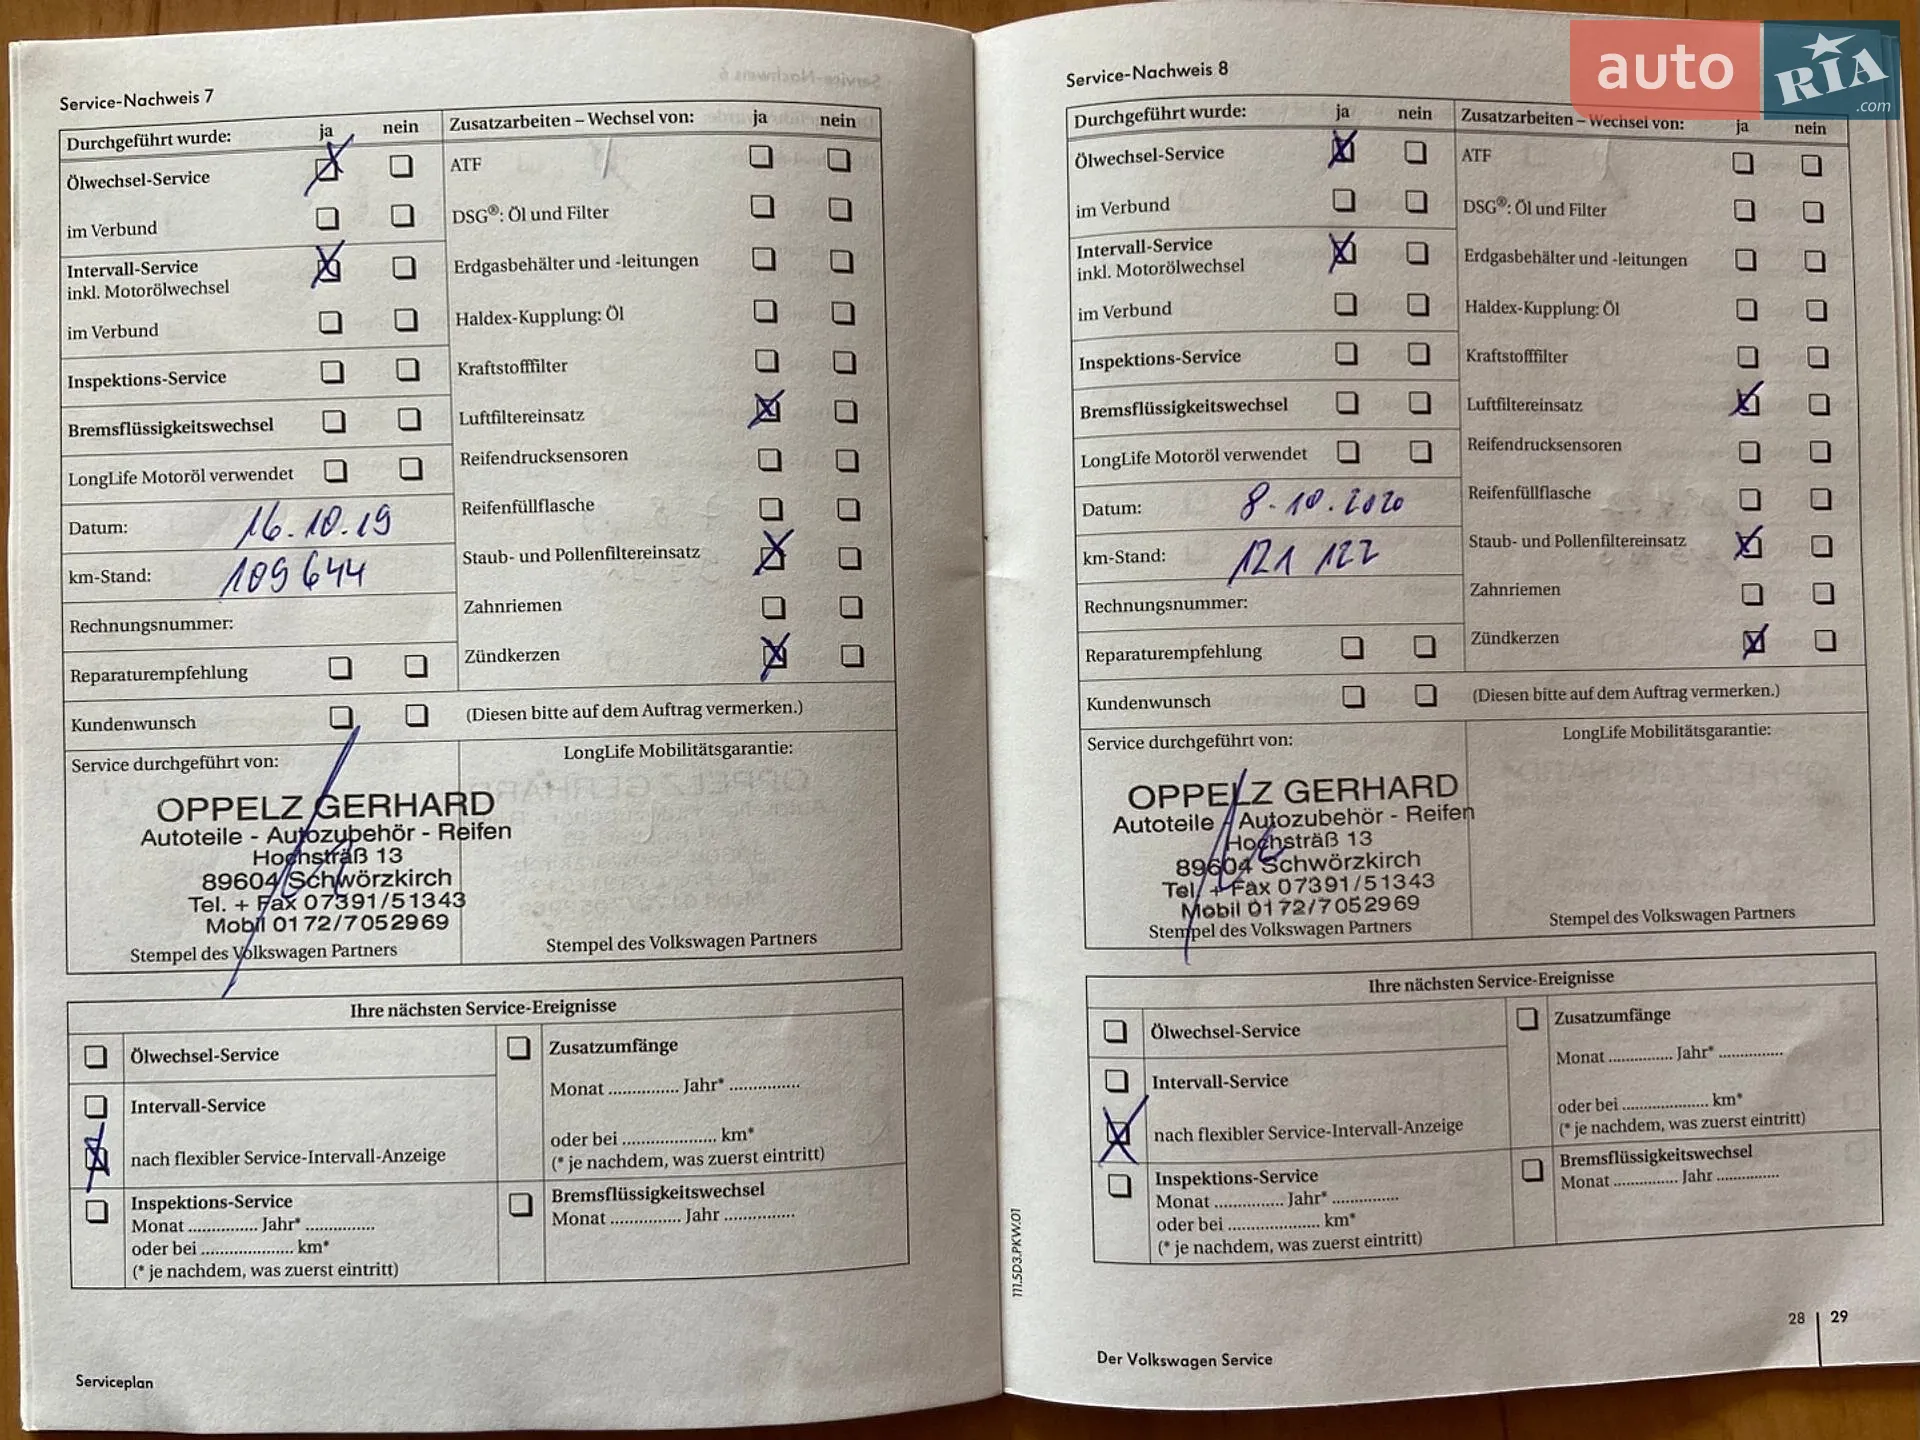 auto RIA .com
Service-Nachweis 7
Durchgeführt wurde: ja nein
Ölwechsel-Service
im Verbund
Intervall-Service
inkl. Motorölwechsel
im Verbund
Inspektions-Service
Bremsflüssigkeitswechsel
LongLife Motoröl verwendet
Datum: 16.10.19
km-Stand: 109 644
Rechnungsnummer:
Reparaturempfehlung
Kundenwunsch
Zusatzarbeiten – Wechsel von: ja nein
ATF
DSG®: Öl und Filter
Erdgasbehälter und -leitungen
Haldex-Kupplung: Öl
Kraftstofffilter
Luftfiltereinsatz
Reifendrucksensoren
Reifenfüllflasche
Staub- und Pollenfiltereinsatz
Zahnriemen
Zündkerzen
(Diesen bitte auf dem Auftrag vermerken.)
Service durchgeführt von:
OPPELZ GERHARD
Autoteile - Autozubehör - Reifen
Hochsträß 13
89604 Schwörzkirch
Tel. + Fax 07391/51343
Mobil 0172/7052969
Stempel des Volkswagen Partners
LongLife Mobilitätsgarantie:
Stempel des Volkswagen Partners
Ihre nächsten Service-Ereignisse
Ölwechsel-Service
Intervall-Service
nach flexibler Service-Intervall-Anzeige
Inspektions-Service
Monat ............... Jahr* ...............
oder bei .................... km*
(* je nachdem, was zuerst eintritt)
Zusatzumfänge
Monat ............... Jahr* ...............
oder bei .................... km*
(* je nachdem, was zuerst eintritt)
Bremsflüssigkeitswechsel
Monat ............... Jahr ...............
Serviceplan
Service-Nachweis 8
Durchgeführt wurde: ja nein
Ölwechsel-Service
im Verbund
Intervall-Service
inkl. Motorölwechsel
im Verbund
Inspektions-Service
Bremsflüssigkeitswechsel
LongLife Motoröl verwendet
Datum: 8.10.2020
km-Stand: 121 122
Rechnungsnummer:
Reparaturempfehlung
Kundenwunsch
Zusatzarbeiten – Wechsel von: ja nein
ATF
DSG®: Öl und Filter
Erdgasbehälter und -leitungen
Haldex-Kupplung: Öl
Kraftstofffilter
Luftfiltereinsatz
Reifendrucksensoren
Reifenfüllflasche
Staub- und Pollenfiltereinsatz
Zahnriemen
Zündkerzen
(Diesen bitte auf dem Auftrag vermerken.)
Service durchgeführt von:
OPPELZ GERHARD
Autoteile - Autozubehör - Reifen
Hochsträß 13
89604 Schwörzkirch
Tel. + Fax 07391/51343
Mobil 0172/7052969
Stempel des Volkswagen Partners
LongLife Mobilitätsgarantie:
Stempel des Volkswagen Partners
Ihre nächsten Service-Ereignisse
Ölwechsel-Service
Intervall-Service
nach flexibler Service-Intervall-Anzeige
Inspektions-Service
Monat ............... Jahr* ...............
oder bei .................... km*
(* je nachdem, was zuerst eintritt)
Zusatzumfänge
Monat ............... Jahr* ...............
oder bei .................... km*
(* je nachdem, was zuerst eintritt)
Bremsflüssigkeitswechsel
Monat ............... Jahr ...............
111.5D3.PKW.01
28 | 29
Der Volkswagen Service